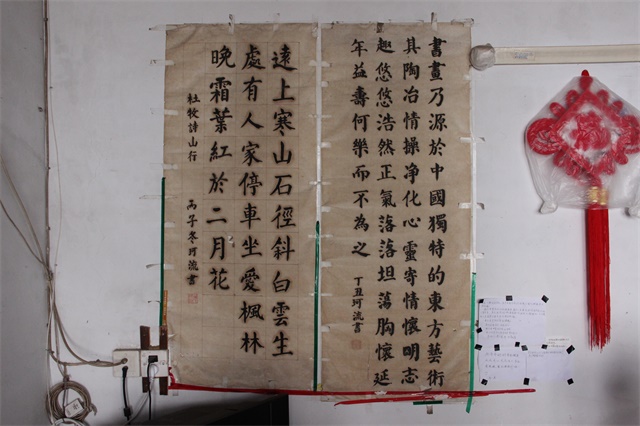 書畫乃源於中國獨特的東方藝術
其陶冶情操净化心靈寄情懷明志
趣悠悠浩然正氣落落坦蕩胸懷延
年益壽何樂而不為之
丁丑珂流書
遠上寒山石徑斜白雲生
處有人家停車坐愛楓林
晚霜葉紅於二月花
杜牧詩山行 丙子冬珂流書